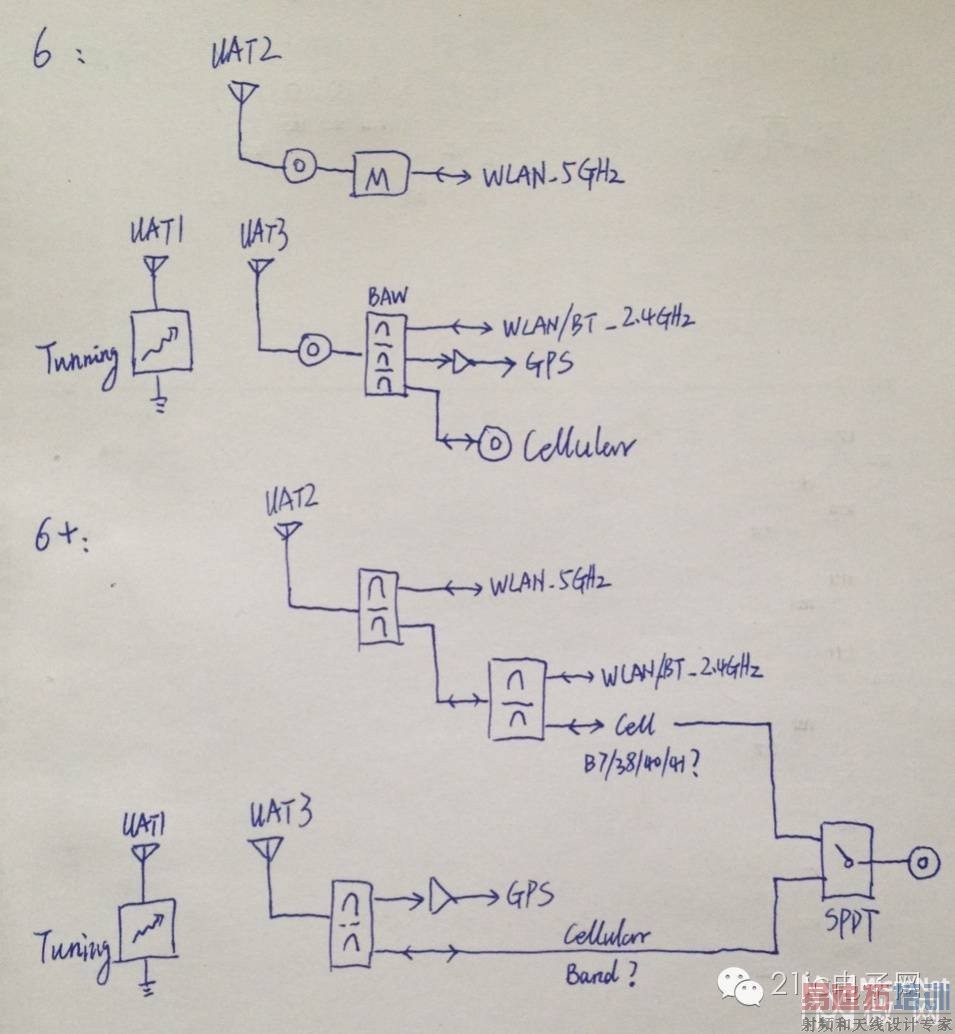 6:
UAT2
M
WLAN-5GHz
UAT1
UAT3
BAW
WLAN/BT-2.4GHz
Tunning
GPS
Cellular
UAT2
6+:
WLAN-5GHz
WLAN/BT-2.4GHz
Cell
B7/38/40/41?
UAT1
UAT3
GPS
Tuning
Cellular
SPDT
Band?
21ic电子网
易迪拓培训
射频和天线设计专家